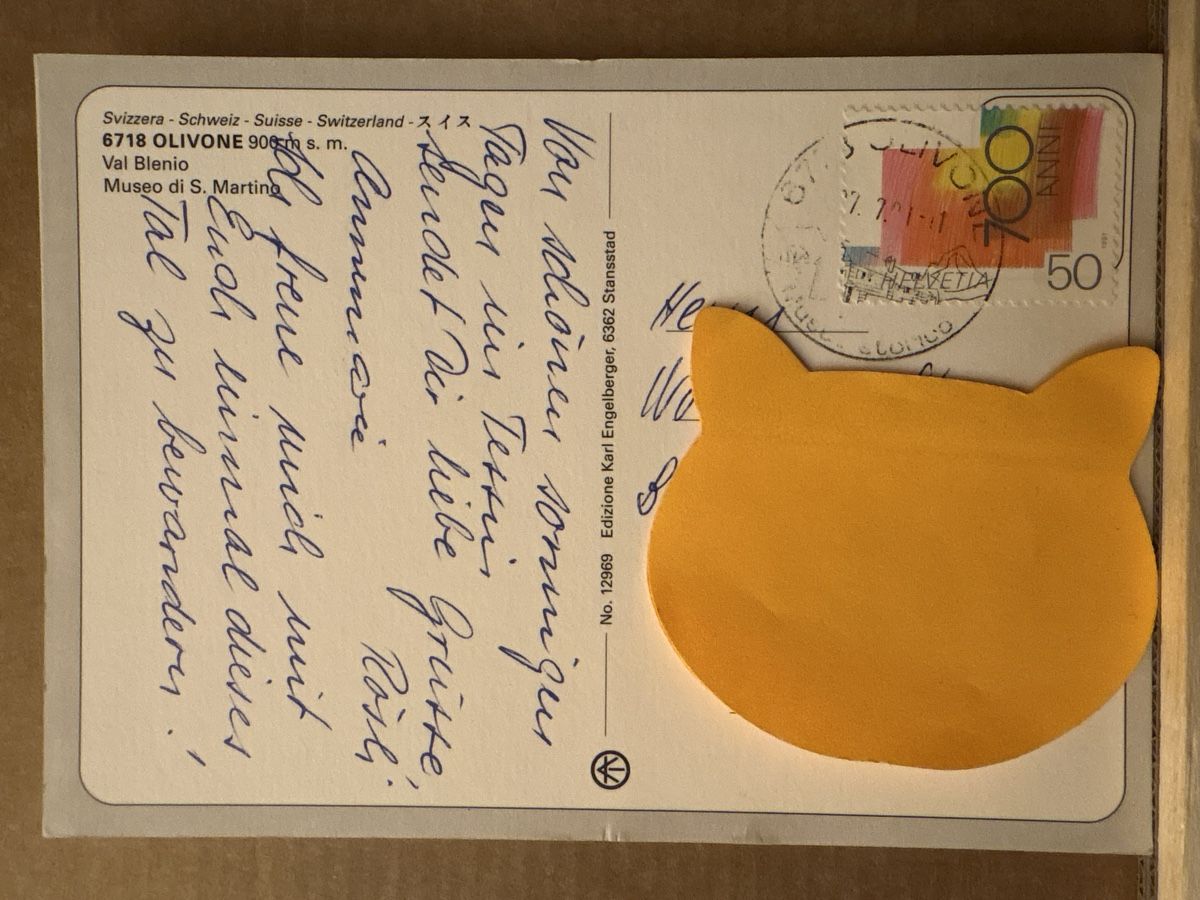 Svizzera - Schweiz - Suisse - Switzerland - スイス
6718 OLIVONE 900 m s. m.
Val Blenio
Museo di S. Martino
Von schönen sonnigen
Tagen im Tessin
sendet Dir liebe Grüsse
Annemarie Rösli
Ich freue mich mit
Euch einmal dieses
Tal zu bewandern!
No. 12969 Edizione Karl Engelberger, 6362 Stansstad
700
ANNI
HELVETIA
50
OLIVONE